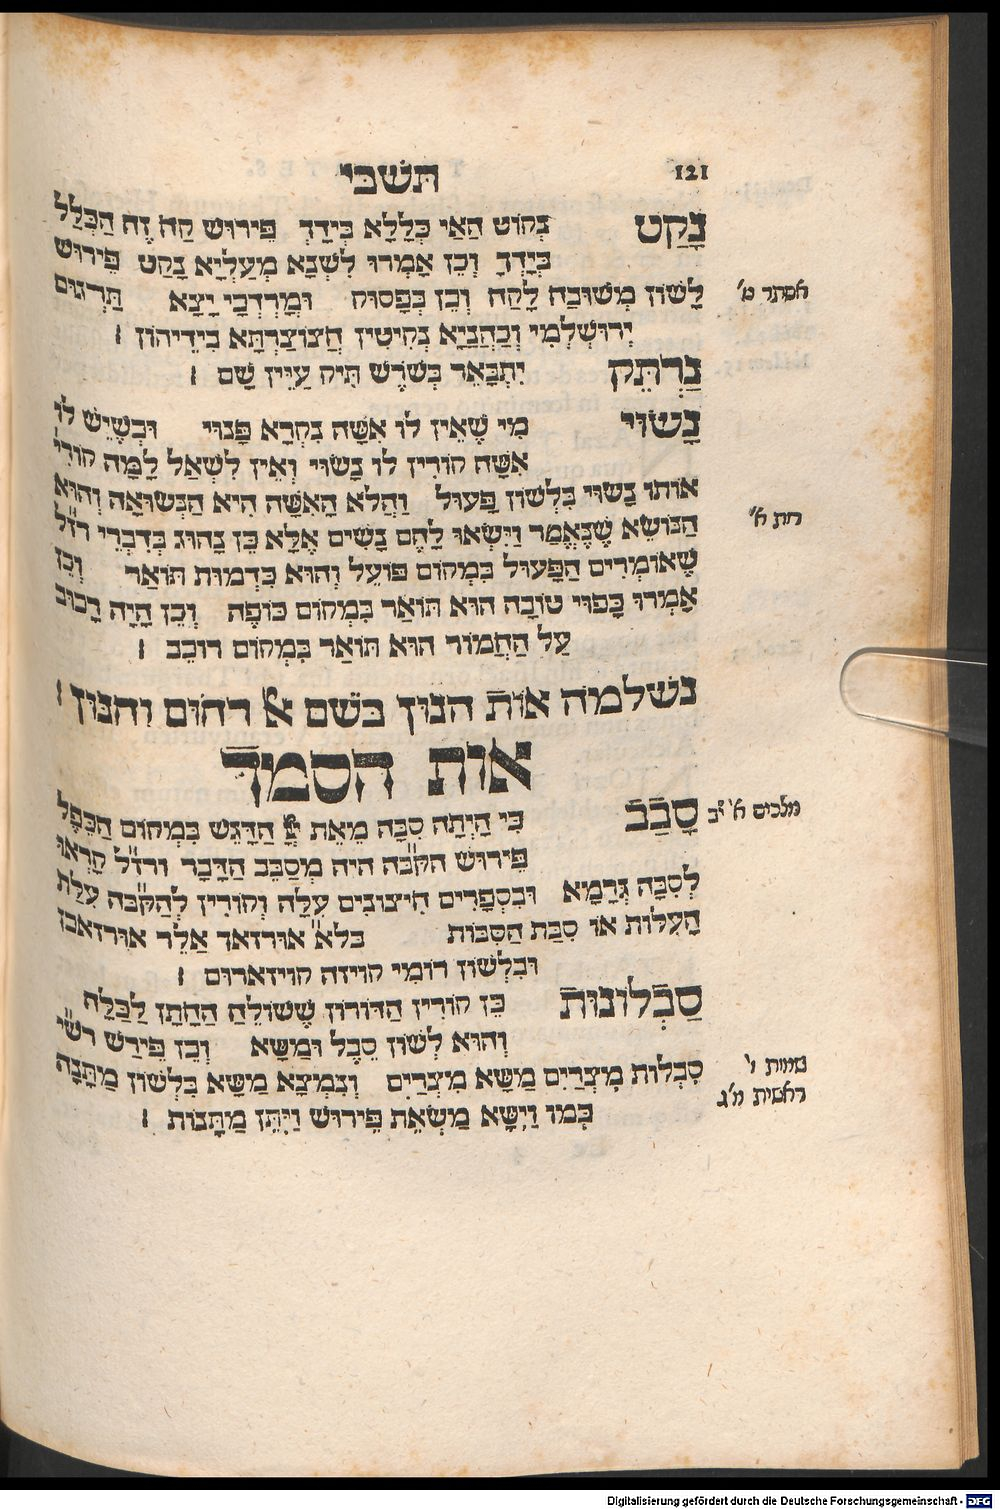 תשבי 121
נָקַט נְקוֹט הַאי כְּלָלָא בִּידָךְ פֵּירוּשׁ קַח זֶה הַכְּלָל
בְּיָדְךָ וְכֵן אָמְרוּ לִשְׁנָא מְעַלְיָא נָקַט פֵּירוּשׁ
לָשׁוֹן מְשׁוּבָּח לָקַח וְכֵן בְּפָסוּק וּמָרְדְּכַי יָצָא תַּרְגּוּם
אסתר ט'
יְרוּשַׁלְמִי וְכַהֲנַיָּא נְקִיטִין חֲצוֹצַרְתָּא בִידֵיהוֹן :
נַרְתֵּק יִתְבָּאֵר בְּשֹׁרֶשׁ תִּיק עַיֵּין שָׁם :
נָשׂוּי מִי שֶׁאֵין לוֹ אִשָּׁה נִקְרָא פָּנוּי וּכְשֶׁיֵּשׁ לוֹ
אִשָּׁה קוֹרִין לוֹ נָשׂוּי וְאֵין לִשְׁאַל לָמָּה קוֹרִי'
אוֹתוֹ נָשׂוּי בִּלְשׁוֹן פָּעוּל וַהֲלֹא הָאִשָּׁה הִיא הַנְּשׂוּאָה וְהוּא
הַנּוֹשֵׂא שֶׁנֶּאֱמַר וַיִּשְׂאוּ לָהֶם נָשִׁים אֶלָּא כֵּן נָהוּג בְּדִבְרֵי רז"ל
רות א'
שֶׁאוֹמְרִים הַפָּעוּל בִּמְקוֹם פּוֹעֵל וְהוּא בִּדְמוּת תּוֹאַר וְכֵן
אָמְרוּ כָּפוּי טוֹבָה הוּא תּוֹאַר בִּמְקוֹם כּוֹפֶה וְכֵן הָיָה רָכוּב
עַל הַחֲמוֹר הוּא תּוֹאַר בִּמְקוֹם רוֹכֵב :
נשלמה אות הנון בשם אל רחום וחנון :
אות הסמך
סָבַב כִּי הָיְתָה סִבָּה מֵאֵת יְיָ הַדָּגֵשׁ בִּמְקוֹם הַכֶּפֶל
מלכים א' יב
פֵּירוּשׁ הקב"ה היה מְסַבֵּב הַדָּבָר ורז"ל קָרְאוּ
לְסִבָּה גְּרָמָא וּבִסְפָרִים חִיצוֹנִים עִלָּה וְקוֹרִין לְהַקָּבָּ"ה עִלַּת
הָעִלּוֹת אוֹ סִבַּת הַסִּבּוֹת בל"א אורזאך אַלֵר אורזאכן
וּבִלְשׁוֹן רוֹמִי קויזה קויזארום :
סַבְלוֹנוֹת כֵּן קוֹרִין הַדּוֹרוֹן שֶׁשּׁוֹלֵחַ הַחָתָן לַכַּלָּה
וְהוּא לְשׁוֹן סֵבֶל וּמַשָּׂא וְכֵן פֵּירֵשׁ רש"י
סִבְלוֹת מִצְרַיִם מַשָּׂא מִצְרַיִם וְנִמְצָא מַשָּׂא בִּלְשׁוֹן מַתָּנָה
שמות ו'
כְּמוֹ וַיִּשָּׂא מַשְׂאֵת פֵּירוּשׁ וַיִּתֵּן מַתָּנוֹת :
ראשית מ'ג
Digitalisierung gefördert durch die Deutsche Forschungsgemeinschaft - DFG